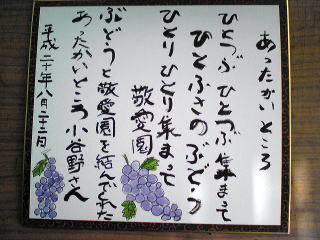 あったかいところ
ひとつぶひとつぶ集まって
ひとふさのぶどう
ひとりひとり集まって
敬愛園
ぶどうと敬愛園を結んでくれた
あったかいところ小谷野さん
平成二十年八月二十三日